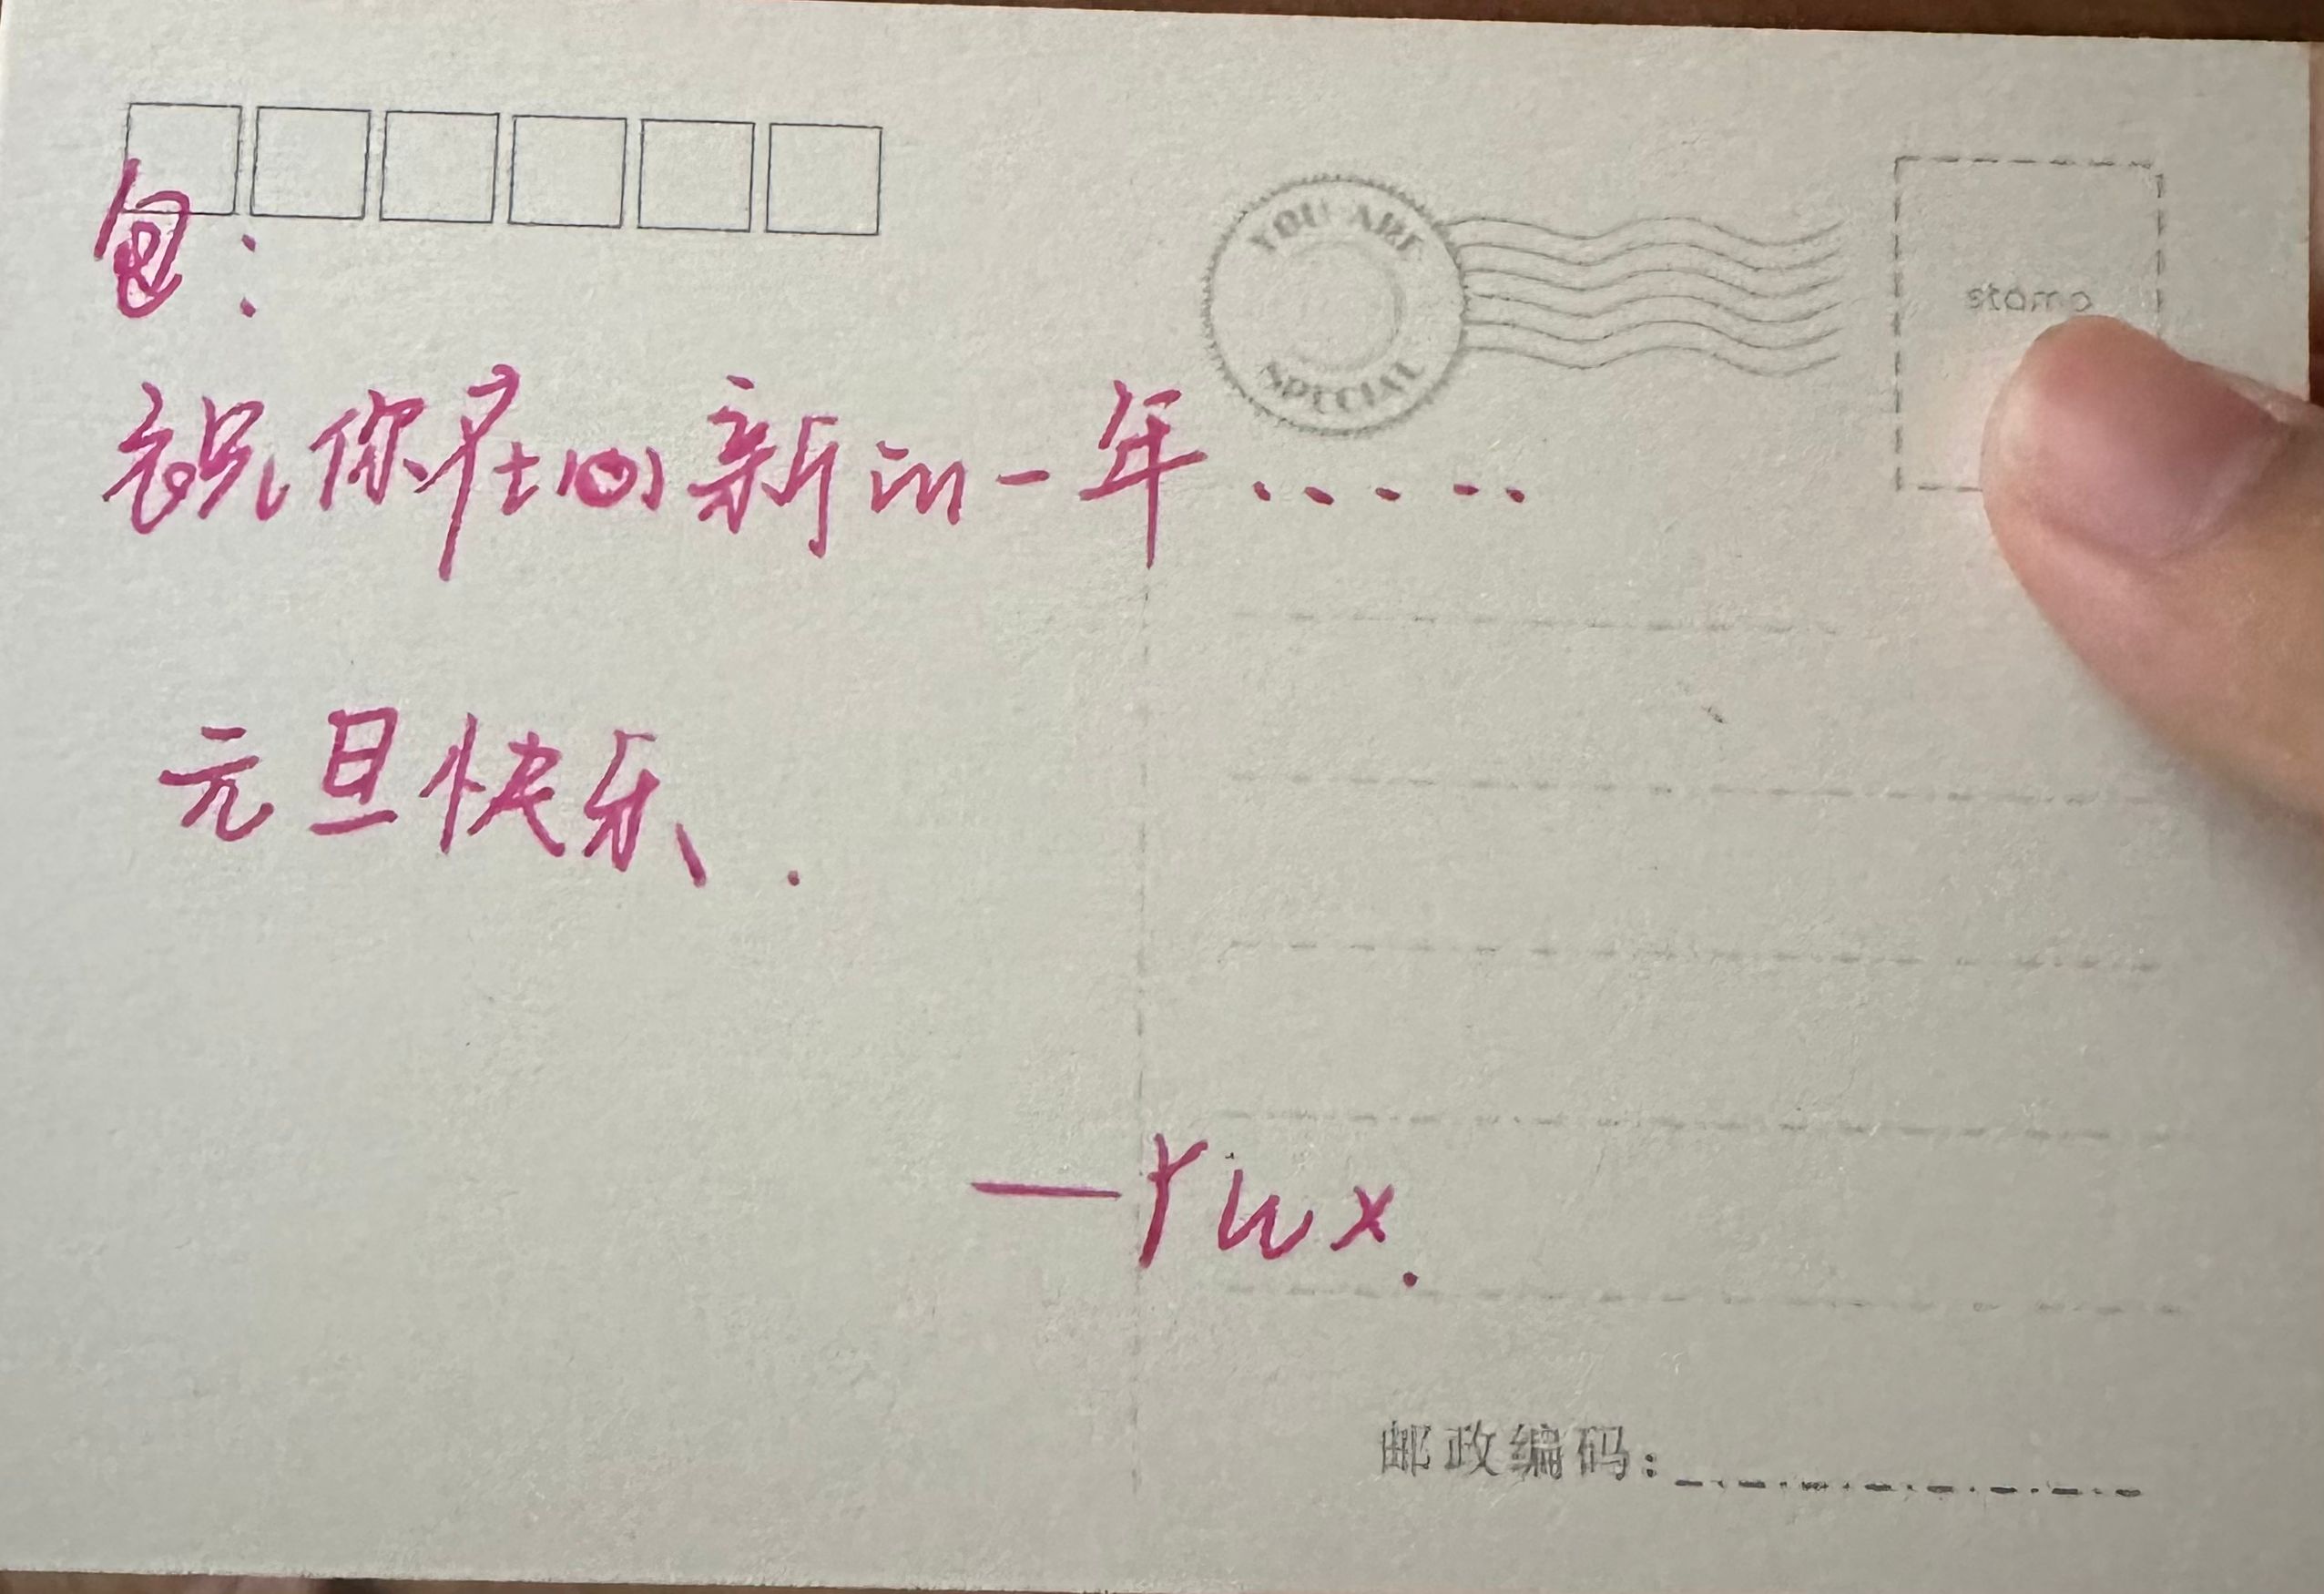 包：
YOU ARE
SPECIAL
祝你在新的一年……
元旦快乐.
—rwx.
邮政编码：